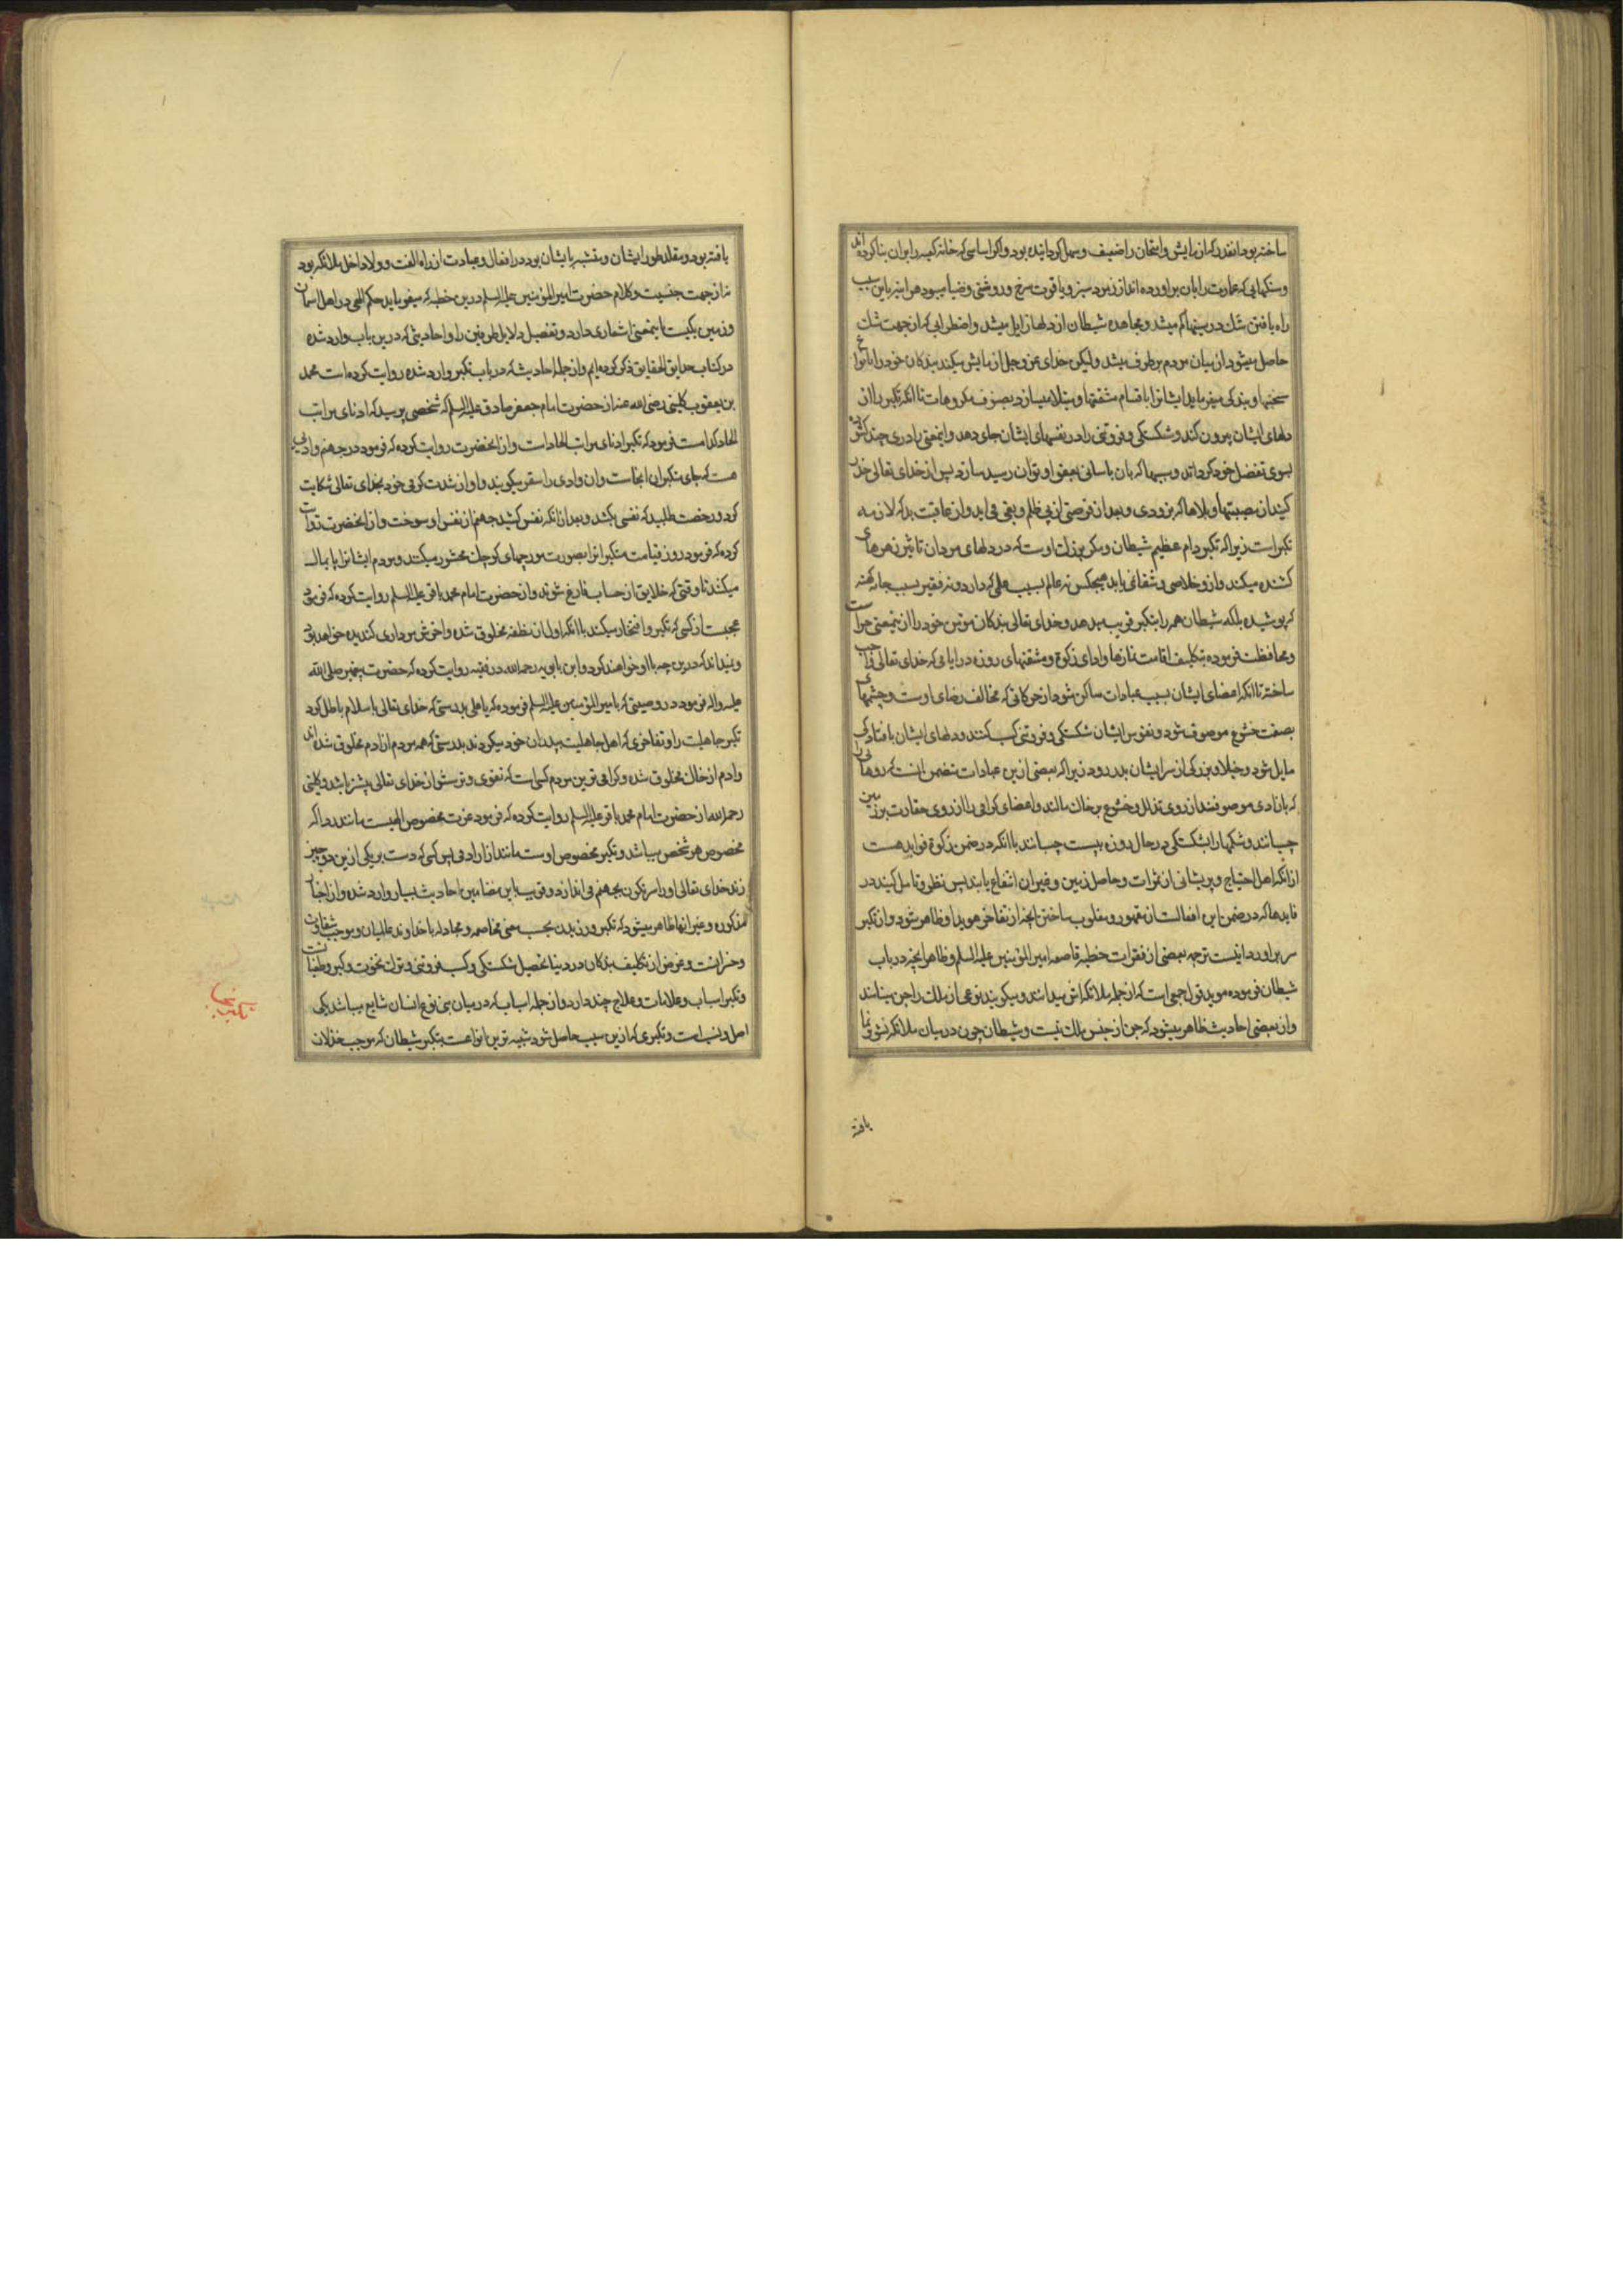 ساخته بود انقدر که ازمایش و امتحان را ضعیف و سهل کردانیده بود و اکر اساسی که خانه کعبه را بر ان بنا کرده اند
و سنکهایی که عمارت را بان براورده اند از زمرد سبز و یاقوت سرخ و روشنی و ضیا میبود هر اینه باین سبب
راه یافتن شک در سینها کم میشد و مجاهده شیطان از دلها زایل میشد و اضطرابی که از جهت شک
حاصل میشود از میان مردم برطرف میشد ولیکن خدای عز و جل ازمایش میکند بندکان خود را بانواع
سختیها و بندکی میفرماید ایشانرا باقسام مشقتها و مبتلا میسازد بصنوف مکروهات تا انکه تکبر را از
دلهای ایشان بیرون کند و شکستکی و فروتنی را در نفسهای ایشان جای دهد و اینمعنی را دری چند کشوده
بسوی تفضل خود کرداند و سببها که بان باسانی بعفو او توان رسید سازد پس از خدای تعالی حذر
کنید از مصیبتها و بلاها که بزودی و بعد از فرصتی از پی ظلم و بغی می اید و از عاقبت بد که لازمه
تکبر است زیرا که تکبر دام عظیم شیطان و مکر بزرک اوست که در دلهای مردان تاثیر زهرهای
کشنده میکند و از و خلاصی و شفائی نیابد هیچکس نه عالم بسبب علمی که دارد و نه فقیر بسبب جامه کهنه
که پوشیده بلکه شیطان همه را بتکبر فریب میدهد و خدای تعالی بندکان مومن خود را از ینمعنی حراست
و محافظت فرموده بتکلیف اقامت نمازها و ادای زکوة و مشقتهای روزه در ایامی که خدای تعالی واجب
ساخته تا انکه اعضای ایشان بسبب عبادات ساکن شود از حرکاتی که مخالف رضای اوست و چشمهای
بصفت خشوع موصوف شود و نفوس ایشان شکستکی و فروتنی کسب کنند و دلهای ایشان بافتادکی
مایل شود و خیلا و بزرکی از سر ایشان بدر رود زیرا که بعضی ازین عبادات متضمن انست که روهایی را
که بازادی موصوفند از روی تذلل و خشوع بر خاک مالند و اعضای کرامی را از روی حقارت بر زمین
چسبانند و شکمها را بشکستکی در حال روزه به پشت چسبانند با انکه در ضمن زکوة فواید هست
از انکه اهل احتیاج و پریشانی از ثمرات و حاصل زمین و غیر ان انتفاع یابند پس نظر و تامل کنید در
فایدها که در ضمن این افعالست از مقهور و مغلوب ساختن انچه از تفاخر هویدا و ظاهر شود و از تکبر
سر براورد اینست ترجمه بعضی از فقرات خطبه قاصعه امیر المؤمنین علیه السلم و ظاهر انچه در باب
شیطان فرموده موید قول جمعی است که از جمله ملائکه اش میدانند و میکویند نوعی از ملک را جن مینامند
و از بعضی احادیث ظاهر میشود که جن از جنس ملک نیست و شیطان چون در میان ملائکه نشو و نما
یافته
یافته بود و مقلد طور ایشان و متشبه بایشان بود در افعال و عبادت از راه الفت و ولا داخل ملائکه بود
نه از جهت جنسیت و کلام حضرت امیر المؤمنین علیه السلم درین خطبه که میفرماید حکم الهی در اهل اسمان
و زمین یکیست باینمعنی اشعاری دارد و تفصیل دلایل طرفین را و احادیثی که درین باب وارد شده
در کتاب حدایق الحقایق ذکر کرده ایم و از جمله احادیث که در باب تکبر وارد شده روایت کرده است محمد
بن یعقوب کلینی رضی الله عنه از حضرت امام جعفر صادق علیه السلم که شخصی پرسید که ادنای مراتب
الحاد کدامست فرمود که تکبر ادنای مراتب الحادست و از انحضرت روایت کرده که فرمود در جهنم وادیی
هست که جای متکبران انجاست و ان وادی را سقر میکویند و او از شدت کرمی خود بخدای تعالی شکایت
کرد و رخصت طلبید که نفسی بکشد و بعد از انکه نفس کشید جهنم از نفس او سوخت و از انحضرت روایت
کرده که فرمود روز قیامت متکبرانرا بصورت مورچهای کوچک محشور میکنند و مردم ایشانرا پایمال
میکنند تا وقتی که خلایق از حساب فارغ شوند و از حضرت امام محمد باقر علیه السلم روایت کرده که فرمود
عجبست از کسی که تکبر و افتخار میکند با انکه اول از نطفه مخلوق شده و اخرش مرداری کندیده خواهد بود
و نمیداند که درین چه با او خواهند کرد و ابن بابویه رحمه الله در فقیه روایت کرده که حضرت پیغمبر صلی الله
علیه واله فرمود در وصیتی که بامیر المؤمنین علیه السلم فرموده که یا علی بدرستی که خدای تعالی باسلام باطل کرد
تکبر جاهلیت را و تفاخری که اهل جاهلیت بپدران خود میکردند بدرستی که همه مردم از ادم مخلوق شده اند
و ادم از خاک مخلوق شده و کرامی ترین مردم کسی است که تقوی و ترسش از خدای تعالی بیشتر باشد و کلینی
رحمه الله از حضرت امام محمد باقر علیه السلم روایت کرده که فرمود عزت مخصوص الهیست مانند ردا که
مخصوص هر شخص میباشد و تکبر مخصوص اوست مانند ازار ادمی پس کسی که دست بر یکی ازین دو چیز
زند خدای تعالی او را سرنکون بجهنم می اندازد و قریب باین مضامین احادیث بسیار وارد شده و از اخبار
مذکوره و غیر انها ظاهر میشود که تکبر ورزیدن بحسب معنی مخاصمه و مجادله با خداوند عالمیان و موجب شقاوت
و خسرانست و غرض از تکلیف بندکان در دنیا تحصیل شکستکی و کسب فروتنی و ترک نخوت و کبر و طغیانست
و تکبر اسباب و علامات و علاج چند دارد و از جمله اسباب که در میان بنی نوع انسان شایع میباشد یکی
اصل و نسب است و تکبری که ازین سبب حاصل شود شبیه ترین انواعست بتکبر شیطان که موجب خذلان